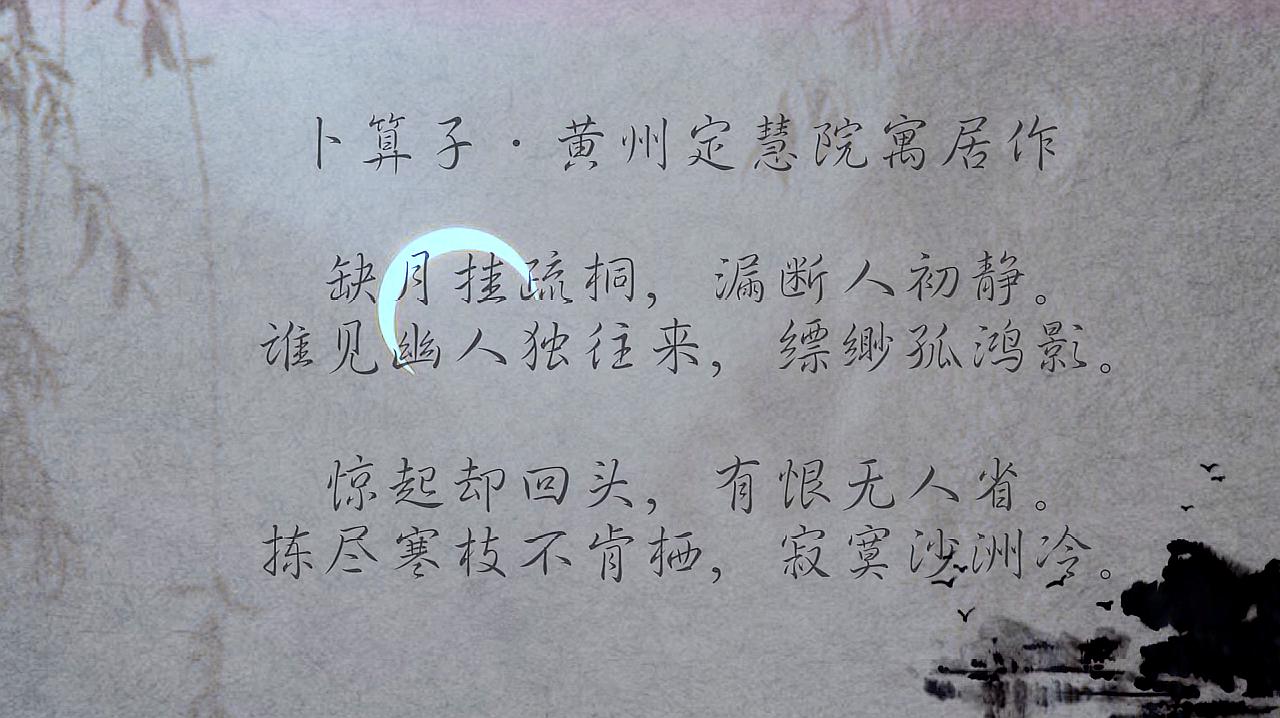 卜算子·黄州定慧院寓居作
缺月挂疏桐，漏断人初静。
谁见幽人独往来，缥缈孤鸿影。
惊起却回头，有恨无人省。
拣尽寒枝不肯栖，寂寞沙洲冷。